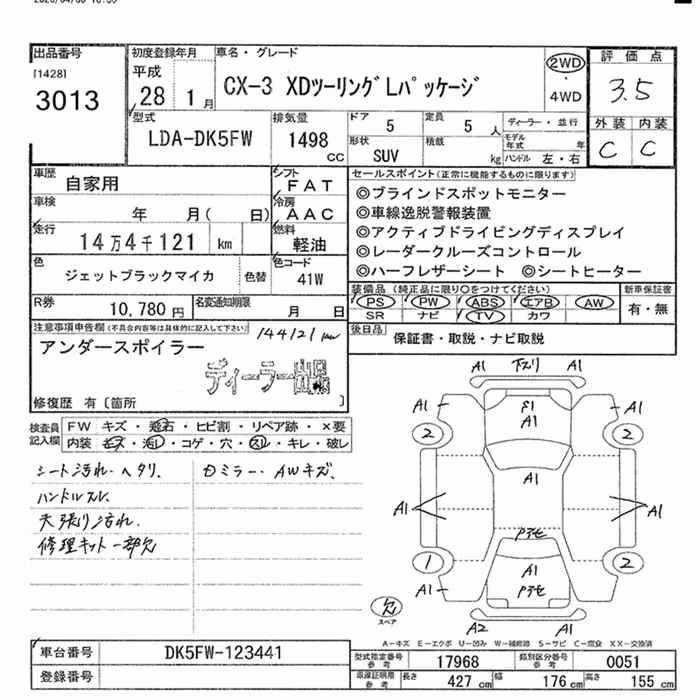 出品番号
[1428]
3013
初度登録年月
平成
28 1月
車名・グレード
CX-3 XDツーリングLパッケージ
2WD
・
4WD
評価点
3.5
外装 内装
C C
型式
LDA-DK5FW
排気量
1498
CC
ドア
5
定員
5 人
ディーラー・並行
形状
SUV
積載
kg
モデル年式 年
ハンドル 左・右
車歴
自家用
シフト
FAT
車検
年 月( 日)
冷房
AAC
走行
14万4千121 km
燃料
軽油
色
ジェットブラックマイカ
色替
色コード
41W
R券
10,780円
名変通知期限
月 日
セールスポイント(正常に機能するものに限ります)
◎ブラインドスポットモニター
◎車線逸脱警報装置
◎アクティブドライビングディスプレイ
◎レーダークルーズコントロール
◎ハーフレザーシート ◎シートヒーター
装備品(純正品に限り○をつけてください)
PS PW ABS エアB AW
SR ナビ TV カワ
新車保証書
有・無
後日品
保証書・取説・ナビ取説
注意事項申告欄(不具合内容等は具体的に記入して下さい)
144121 km
アンダースポイラー
ディーラー出品
修復歴 有〔箇所 〕
検査員記入欄
FW キズ・飛石・ヒビ割・リペア跡・×要
内装 キズ・汚れ・コゲ・穴・スレ・キレ・破し
シート汚れ・ヘタリ.
Dミラー・AWキズ.
ハンドルスレ.
天張り汚れ.
修理キット一部欠
A1 下スリ A1
A1 A1 A1
2 2
A1 A1 A1
1 2
A1 A1 A1
A2 A1
欠
スペア
A-キズ E-エクボ U-凹み W-補修跡 S-サビ C-腐食 XX-交換済
車台番号
DK5FW-123441
登録番号
型式指定番号
参考
17968
類別区分番号
参考
0051
車検証明用
参考
長さ
427 cm
幅
176 cm
高さ
155 cm